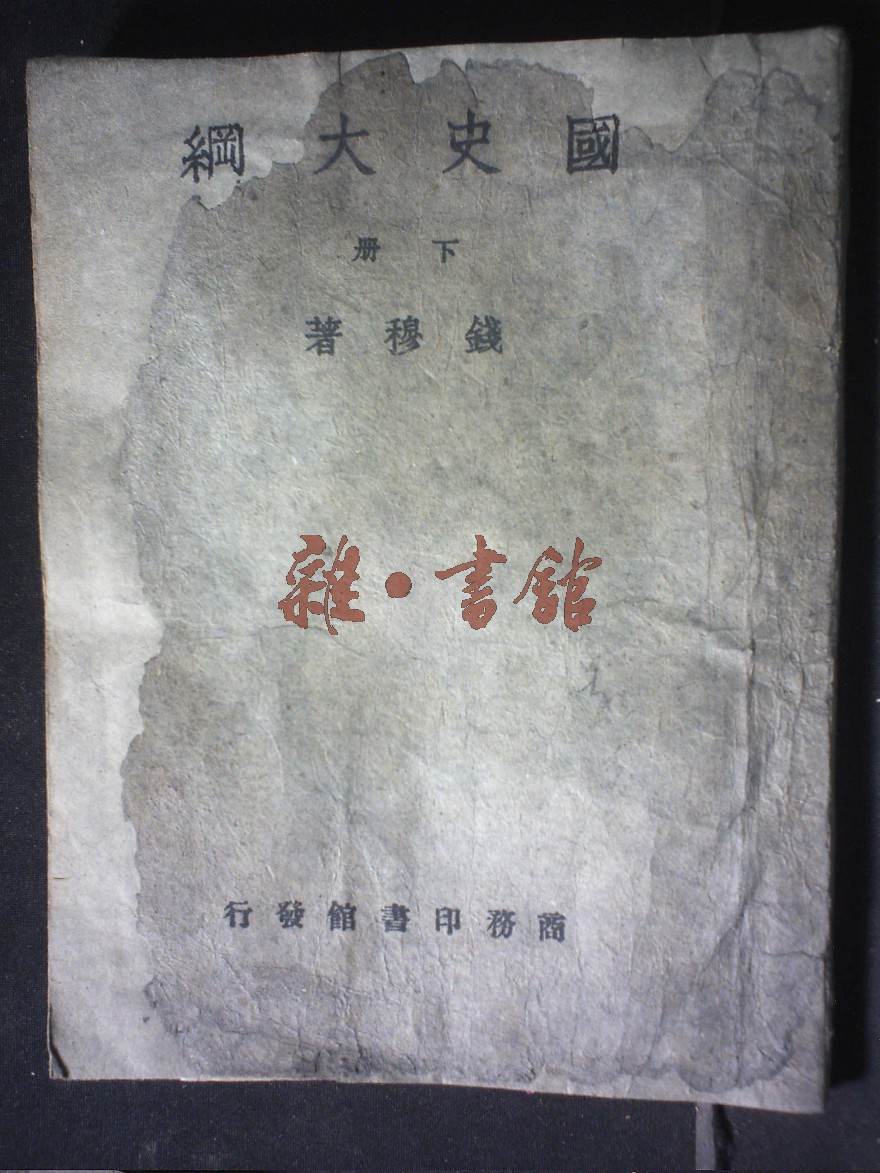 國史大綱
下册
錢穆著
雜·書館
商務印書館發行